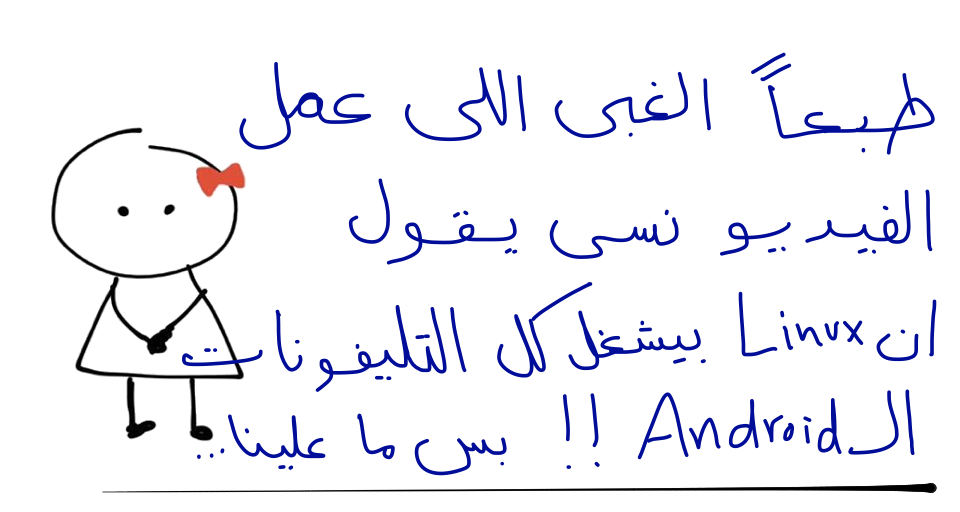 طبعاً الغبى اللى عمل
الفيديو نسى يقول
ان Linux بيشغل كل التليفونات
الـ Android !! بس ما علينا...